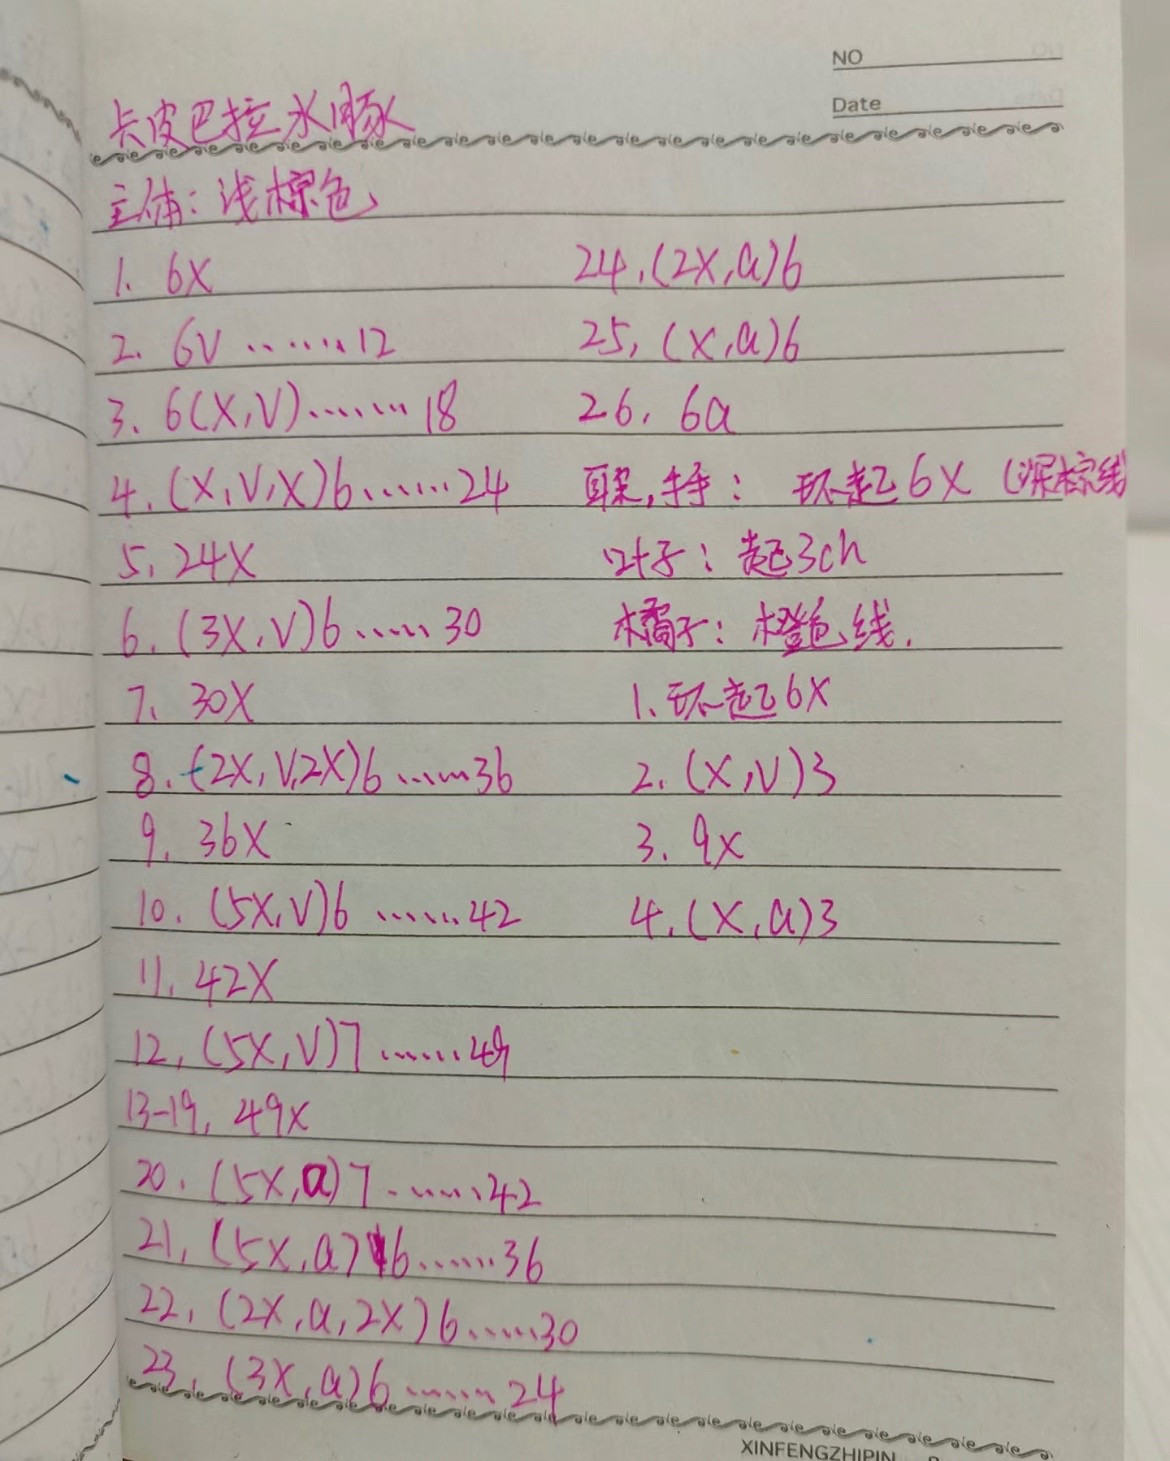 NO
Date
卡皮巴拉水豚
主体：浅棕色
1. 6X
2. 6V ······· 12
3. 6(X,V)······· 18
4. (X,V,X)6······24
5. 24X
6. (3X,V)6 ······ 30
7. 30X
8. (2X,V,2X)6 ······36
9. 36X
10. (5X,V)6 ······42
11. 42X
12, (5X,V)7 ······49
13-19, 49X
20. (5X,a)7 ······42
21, (5X,a)6······36
22, (2X,a,2X)6······30
23, (3X,a)6 ······ 24
24,(2X,a)6
25, (X,a)6
26. 6a
耳朵,手：环起6X (深棕线
叶子：起3ch
橘子：橙色线.
1. 环起6X
2. (X,V)3
3. 9X
4. (X,a)3
XINFENGZHIPIN